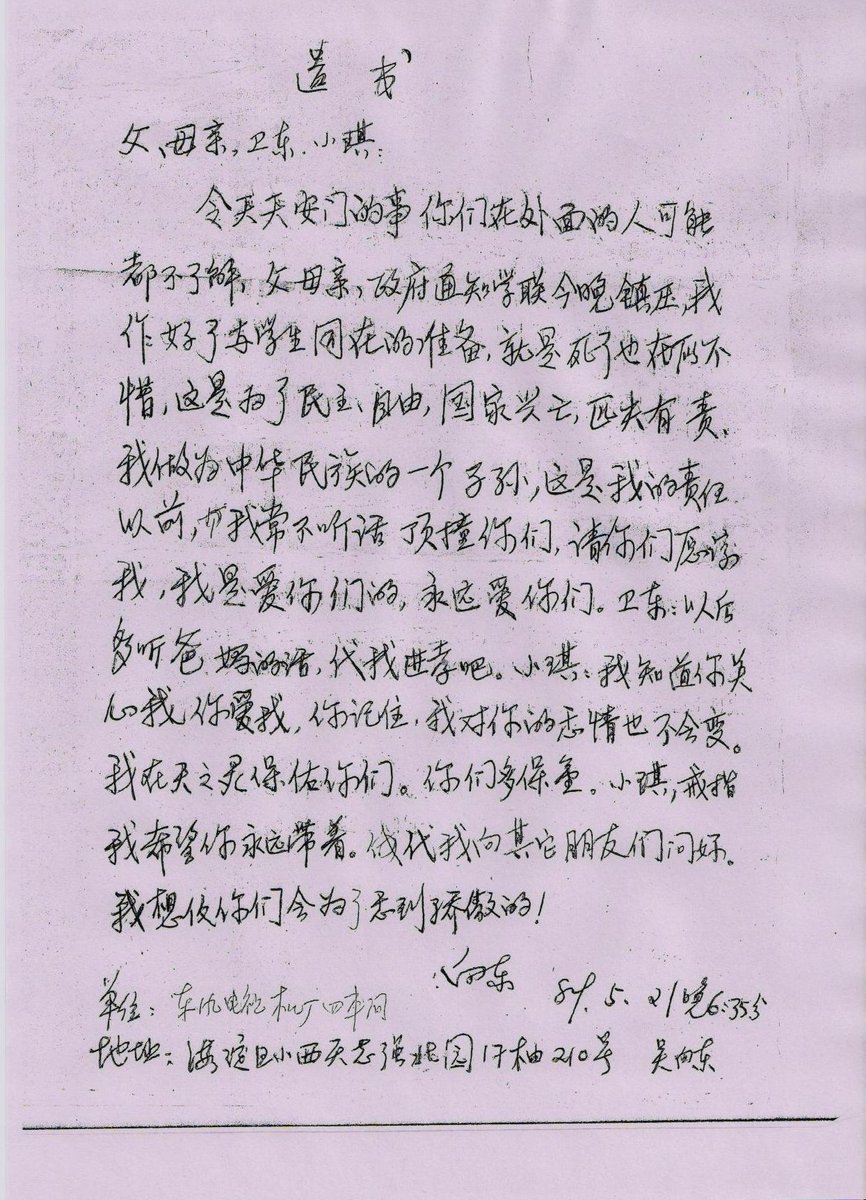 遗书
父、母亲，卫东、小琪：
今天天安门的事你们在外面的人可能
都不了解，父母亲，政府通知学联今晚镇压，我
作好了与学生同在的准备，就是死了也在所不
惜，这是为了民主、自由，国家兴亡，匹夫有责，
我做为中华民族的一个子孙，这是我的责任
以前，我常不听话顶撞你们，请你们原谅
我，我是爱你们的，永远爱你们。卫东：以后
多听爸妈的话，代我进孝吧。小琪：我知道你关
心我，你爱我，你记住，我对你的恋情也不会变。
我在天之灵保佑你们。你们多保重。小琪，戒指
我希望你永远带着。代我向其它朋友们问好。
我想你们会为了感到骄傲的！
向东 89.5.21晚6:35分
单位：东风电视机厂四车间
地址：海淀区小西天志强北园17楼210号 吴向东